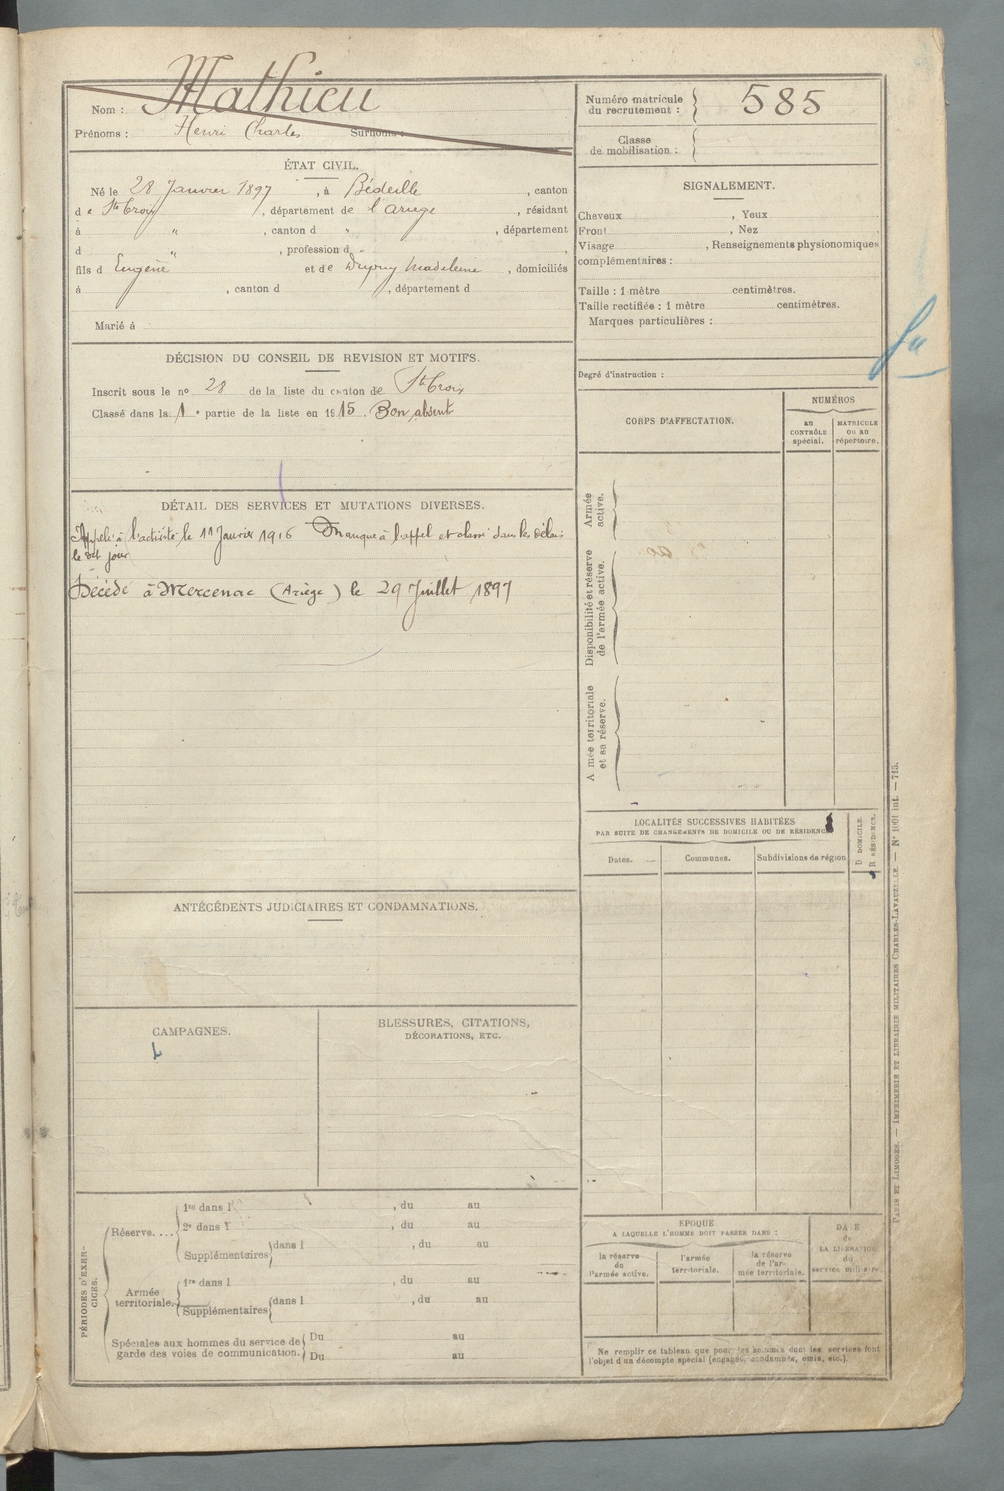 Nom : Mathieu
Prénoms : Henri Charles Surnoms :
Numéro matricule du recrutement : 585
Classe de mobilisation :
ÉTAT CIVIL.
Né le 28 Janvier 1897, à Bédeille, canton
de Ste Croix, département de l'Ariège, résidant
à " , canton d " , département
d " , profession d
fils d Eugène et de Dupuy Madeleine, domiciliés
à , canton d , département d
Marié à
SIGNALEMENT.
Cheveux , Yeux
Front , Nez
Visage , Renseignements physionomiques
complémentaires :
Taille : 1 mètre centimètres.
Taille rectifiée : 1 mètre centimètres.
Marques particulières :
Degré d'instruction :
DÉCISION DU CONSEIL DE REVISION ET MOTIFS.
Inscrit sous le no 28 de la liste du canton de Ste Croix
Classé dans la 1e partie de la liste en 1915. Bon, absent
DÉTAIL DES SERVICES ET MUTATIONS DIVERSES.
Appelé à l'activité le 11 Janvier 1916 Manque à l'appel et classé dans les délais
le dit jour
Décédé à Mercenac (Ariège) le 29 Juillet 1897
CORPS D'AFFECTATION.
NUMÉROS
au CONTRÔLE spécial.
MATRICULE ou au répertoire.
Armée active.
Disponibilité et réserve de l'armée active.
Armée territoriale et sa réserve.
LOCALITÉS SUCCESSIVES HABITÉES
PAR SUITE DE CHANGEMENTS DE DOMICILE OU DE RÉSIDENCE
D DOMICILE.
R RÉSIDENCE.
Dates. Communes. Subdivisions de région
ANTÉCÉDENTS JUDICIAIRES ET CONDAMNATIONS.
CAMPAGNES.
BLESSURES, CITATIONS,
DÉCORATIONS, ETC.
PÉRIODES D'EXERCICES.
Réserve....
1re dans l , du au
2e dans l , du au
Supplémentaires dans l , du au
Armée territoriale.
1re dans l , du au
Supplémentaires dans l , du au
Spéciales aux hommes du service de
garde des voies de communication.
Du au
Du au
EPOQUE
A LAQUELLE L'HOMME DOIT PASSER DANS :
la réserve de l'armée active.
l'armée territoriale.
la réserve de l'armée territoriale.
DATE de LA LIBÉRATION du service militaire.
Ne remplir ce tableau que pour les hommes dont les services font
l'objet d'un décompte spécial (engagés, condamnés, omis, etc.).
PARIS ET LIMOGES. — IMPRIMERIE ET LIBRAIRIE MILITAIRES CHARLES-LAVAUZELLE. — N° 1001 int. — 715.